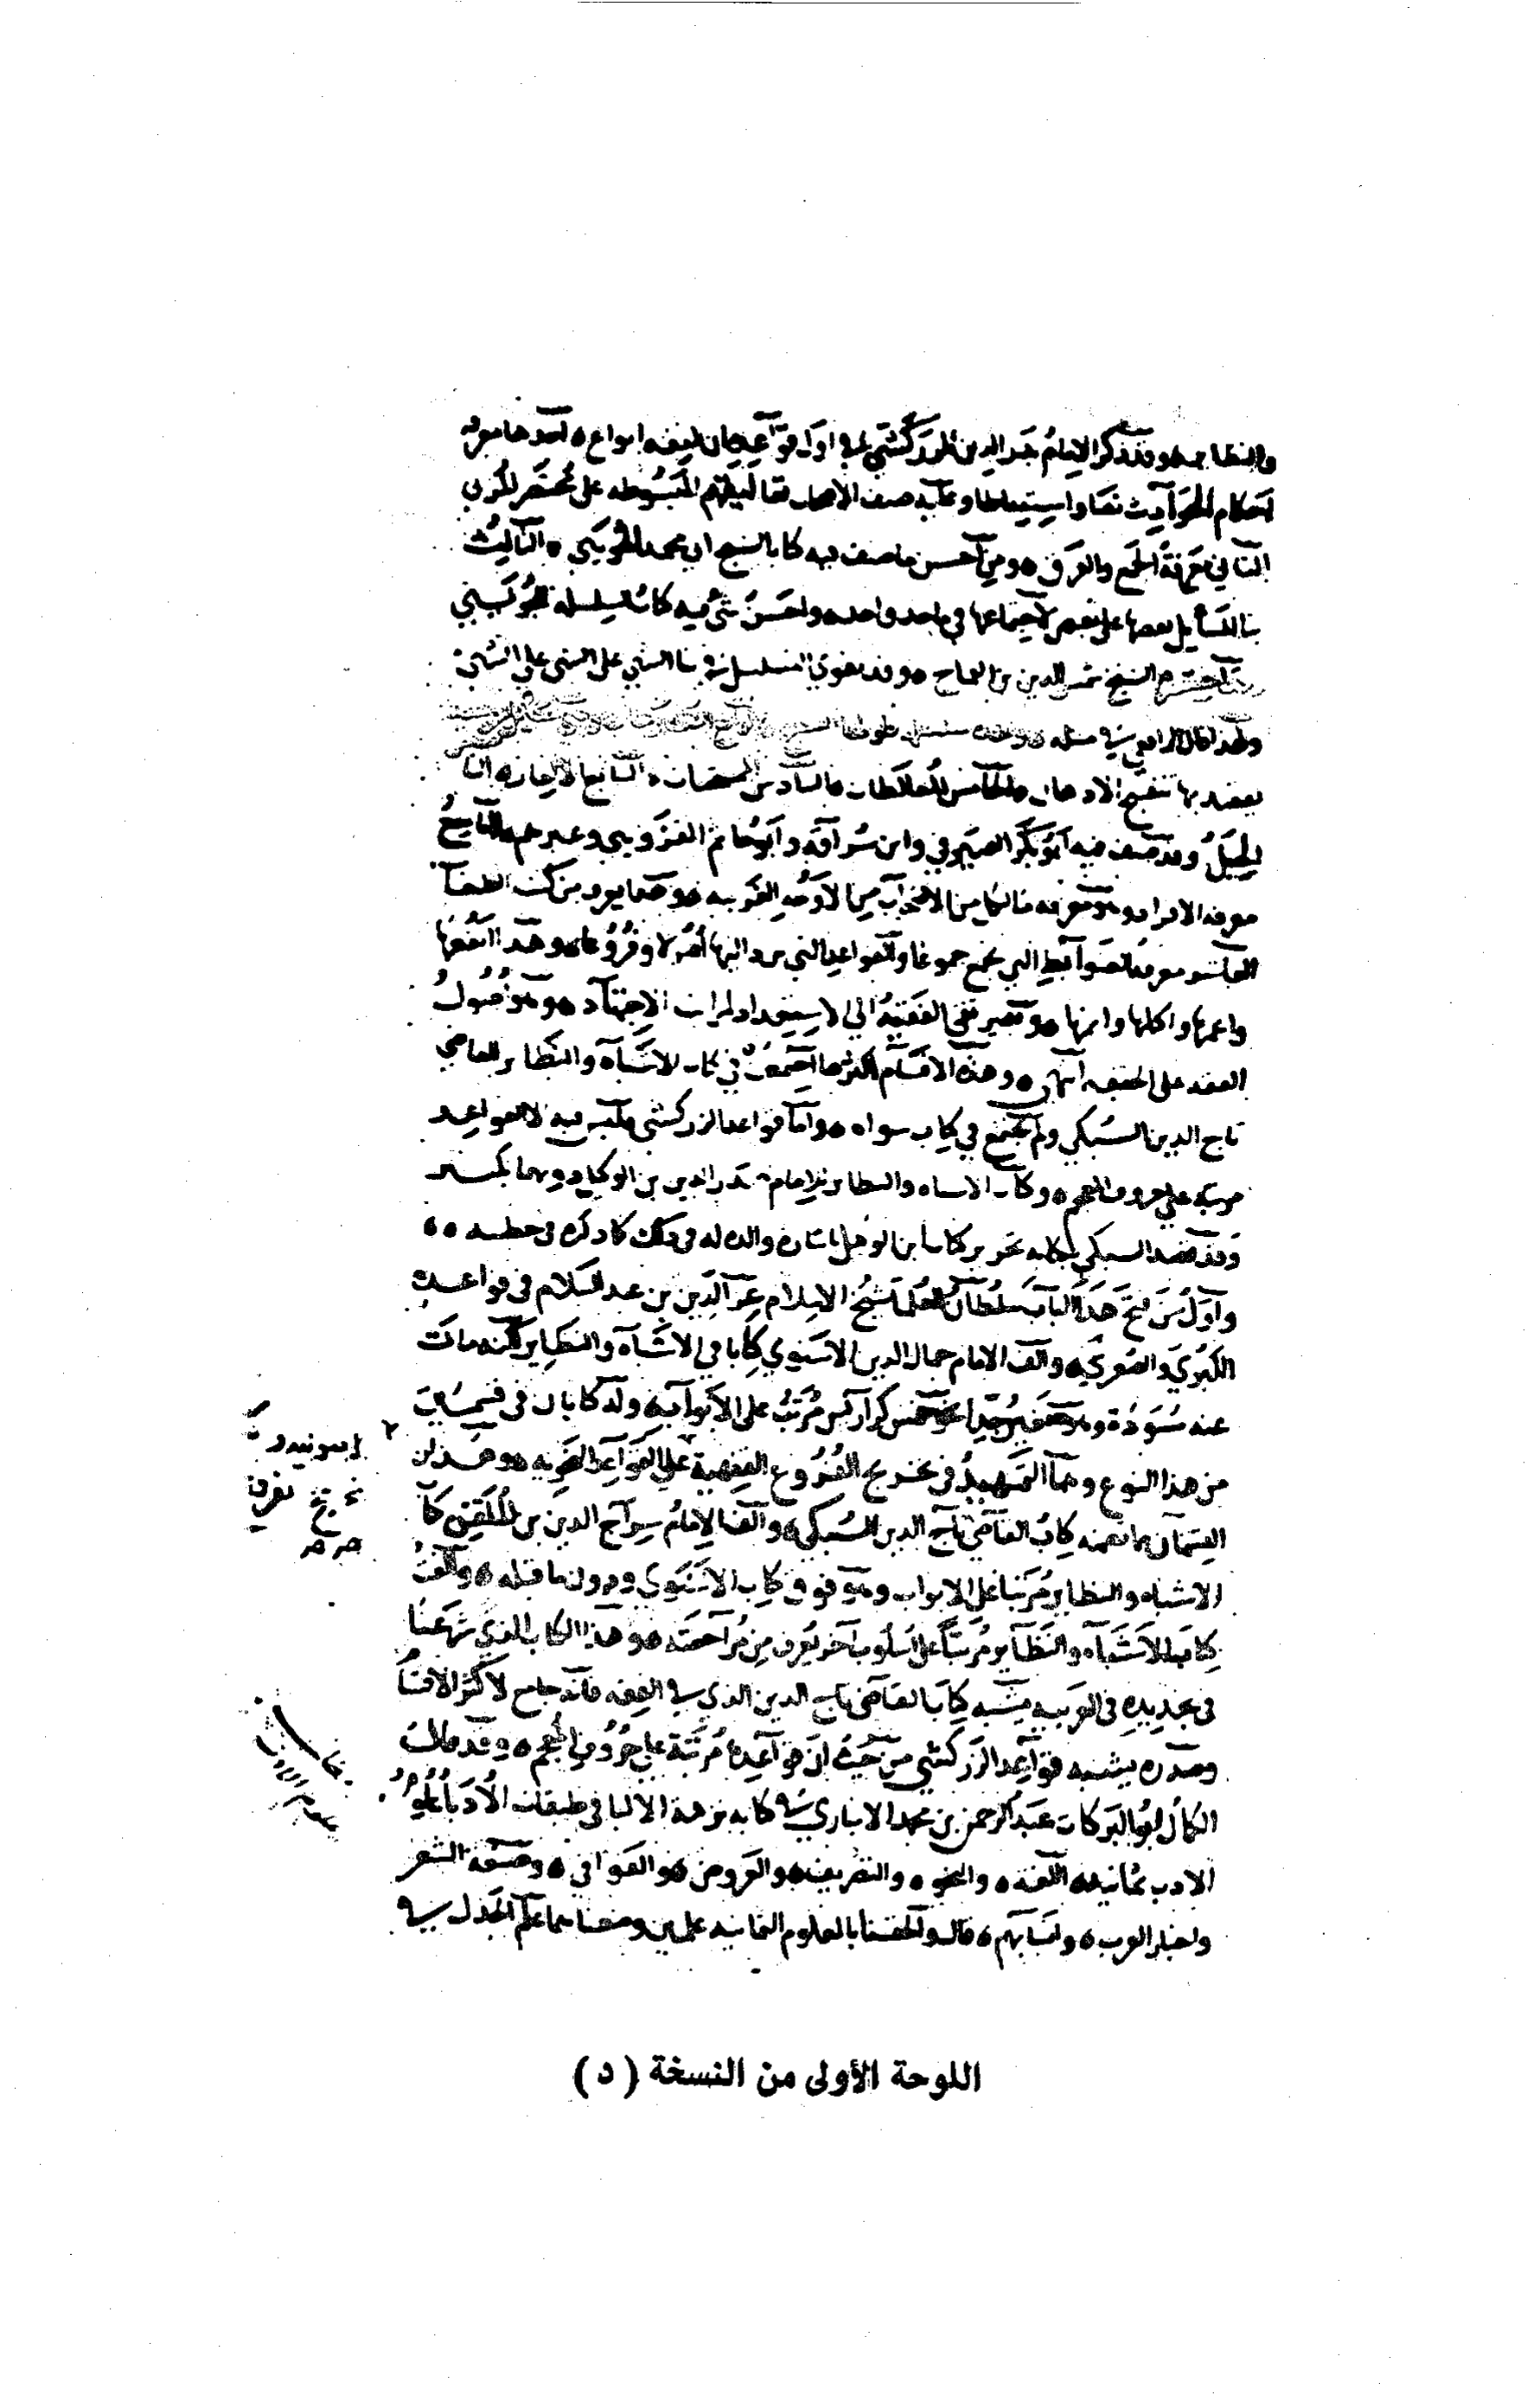 والنظاير وقد ذكر الامام بدر الدين الزركشي في اول قواعده ان الفقه انواع احدها معرفة
احكام الحوادث نصا واستنباطا وعليه صنف الاصحاب تعاليقهم المبسوطه على مختصر المزني
الثاني معرفة الجمع والفرق ومن احسن ما صنف فيه كتاب الشيخ ابي محمد الجويني الثالث
بنا المسايل بعضها على بعض لاجتماعها في ماخذ واحد واحسن شي فيه كتاب السلسله للجويني
وقد اختصره الشيخ شمس الدين بن القماح وقد يقوي التسلسل في بنا الشي على الشي على الشي
ولهذا قال الرافعي في مسله وهذه سلسله طولها الشيخ
يقصد بها تنقيح الاذهان الخامس المغالطات السادس الممتحنات السابع الالغاز الثامن
الحيل وقد صنف فيه ابو بكر الصيرفي وابن سراقه وابو حاتم القزويني وغيرهم التاسع
معرفة الافراد وهو معرفة ما لكل من الاصحاب من الاوجه الغريبه وهذا يعرف من كتب الطبقات
العاشر معرفة الضوابط التي تجمع جموعا والقواعد التي ترد اليها اصولا وفروعا وهذا انفعها
واعمها واكملها واتمها وبه يرتقي الفقيه الي الاستعداد لمراتب الاجتهاد وهو اصول
الفقه على الحقيقه انتهى وهذه الاقسام اكثرها اجتمعت في كتاب الاشباه والنظاير للقاضي
تاج الدين السبكي ولم تجتمع في كتاب سواه واما قواعد الزركشي فليس فيه الا القواعد
مرتبة على حروف المعجم وكتاب الاشباه والنظاير للامام صدر الدين بن الوكيل دونهما بكثير
وقد قصد السبكي بكتابه تحرير كتاب ابن الوكيل باشارة والده له في ذلك كما ذكره في خطبته
واول من فتح هذا الباب سلطان العلما شيخ الاسلام عز الدين بن عبد السلام في قواعده
الكبرى والصغرى والف الامام جمال الدين الاسنوي كتابا في الاشباه والنظاير لكنه مات
عنه مسودة وهو صغير جدا نحو خمس كراريس مرتب على الابواب وله كتابان في قسمين
من هذا النوع وهما التمهيد في تخريج الفروع الفقهية على القواعد وهذان
القسمان مما تضمنه كتاب القاضي تاج الدين السبكي والف الامام سراج الدين بن الملقن كتاب
الاشباه والنظاير مرتبا على الابواب وهو فوق كتاب الاسنوي ودون ما قبله والفت
كتاب الاشباه والنظاير مرتبا على اسلوب اخر يعرف من مراجعته وهذا الكتاب الذي شرعنا
في تجديده في العربية يشبه كتاب القاضي تاج الدين الذي في الفقه فانه جامع لاكثر الاقسام
وصدره يشبه قواعد الزركشي من حيث ان قواعده مرتبة على حروف المعجم وقد قال
الكمال ابو البركات عبد الرحمن بن محمد الانباري في كتابه نزهة الالبا في طبقات الادبا علوم
الادب ثمانية اللغة والنحو والتصريف والعروض والقوافي وصنعة الشعر
واخبار العرب وانسابهم قال والحقنا بالعلوم الثمانية علمين وضعناهما علم الجدل في
اللوحة الأولى من النسخة (د)